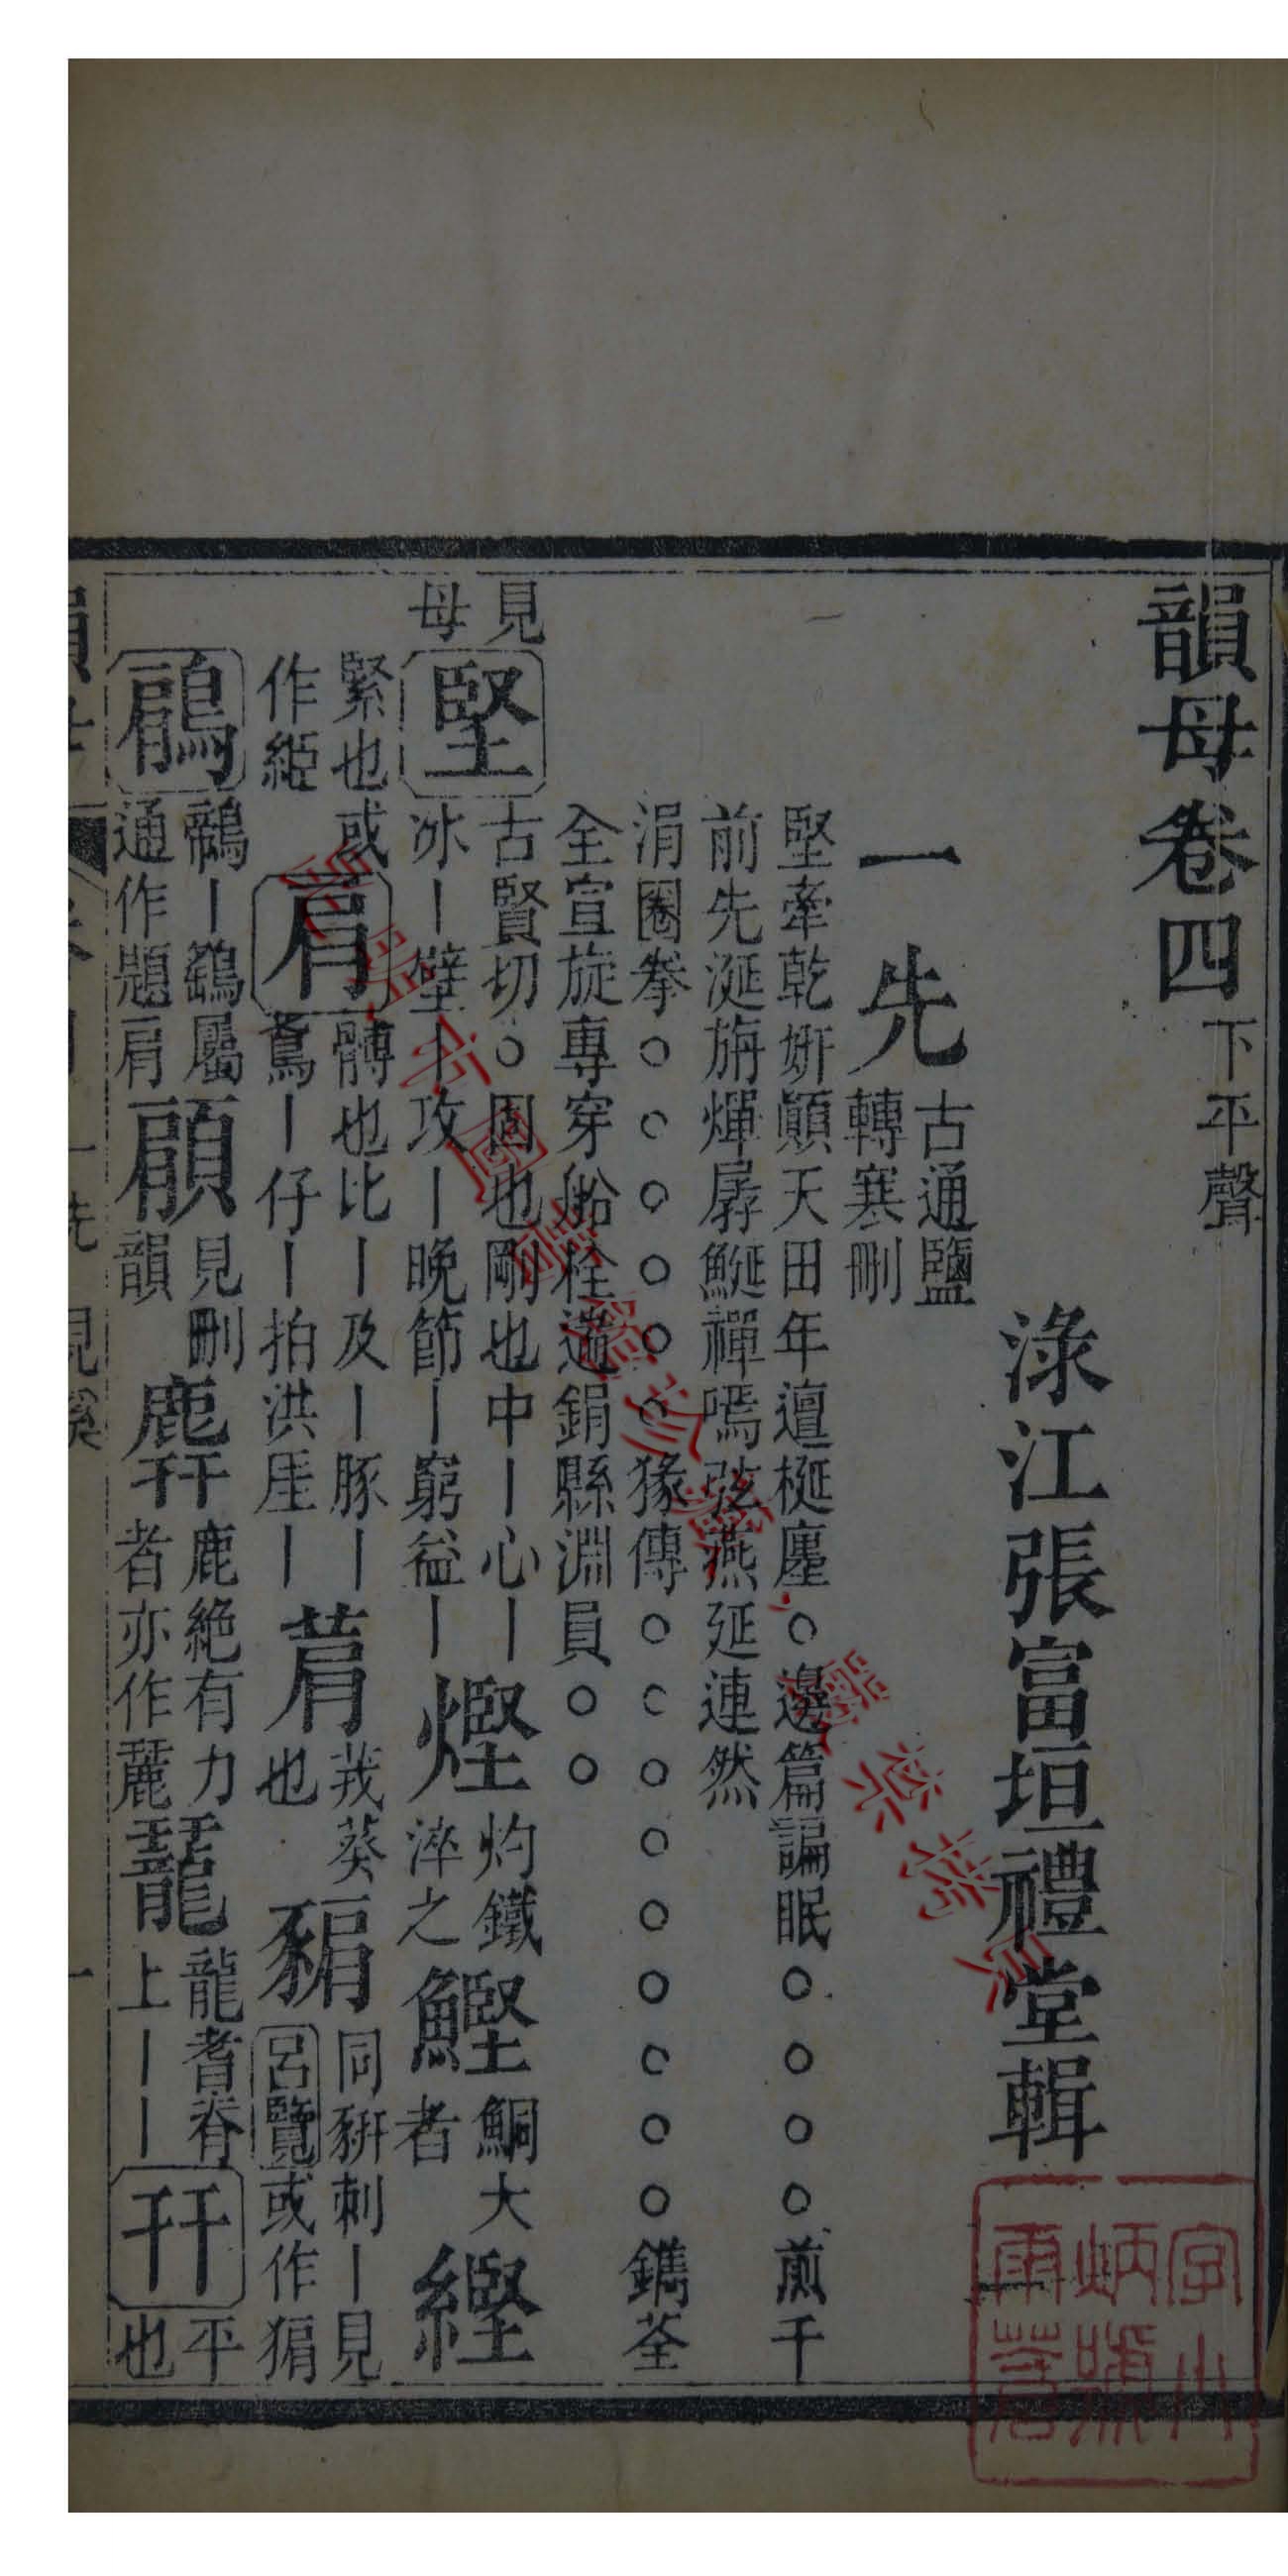 韻母卷四下平聲
淥江張富垣禮堂輯
一先古通鹽
轉寒刪
堅牽乾姸顚天田年邅梴廛○邊篇諞眠○○○○煎千
前先涎旃燀孱鯅禪嘕弦燕延連然
涓圈拳○○○○○○猭傳○○○○○○○○○鐫荃
全宣旋專穿船栓遄鋗縣淵員○○
見
母
堅古賢切○固也剛也中丨心丨
冰丨壁丨攻丨晩節丨窮益丨
熞灼鐵
淬之
鰹鮦大
者
緊也或
作絚
肩髆也比丨及丨豚丨
鳶丨仔丨拍洪厓丨
菺茙葵
也
豜同豣刺丨見
呂覽或作狷
鵳鶺丨鷂屬
通作題肩
顅見刪
韻
鹿絕有力
者亦作麉
龍耆脊
上丨丨
幵平
也